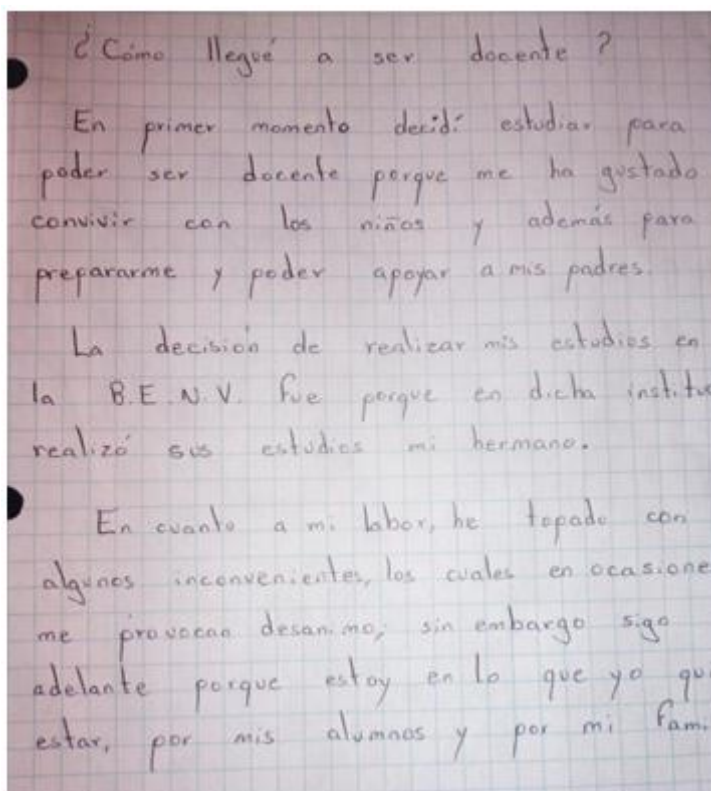 ¿Cómo llegué a ser docente?
En primer momento decidí estudiar para
poder ser docente porque me ha gustado
convivir con los niños y además para
prepararme y poder apoyar a mis padres.
La decisión de realizar mis estudios en
la B.E.N.V. fue porque en dicha institu
realizó sus estudios mi hermano.
En cuanto a mi labor, he topado con
algunos inconvenientes, los cuales en ocasione
me provocan desanimo, sin embargo sigo
adelante porque estoy en lo que yo qu
estar, por mis alumnos y por mi fam